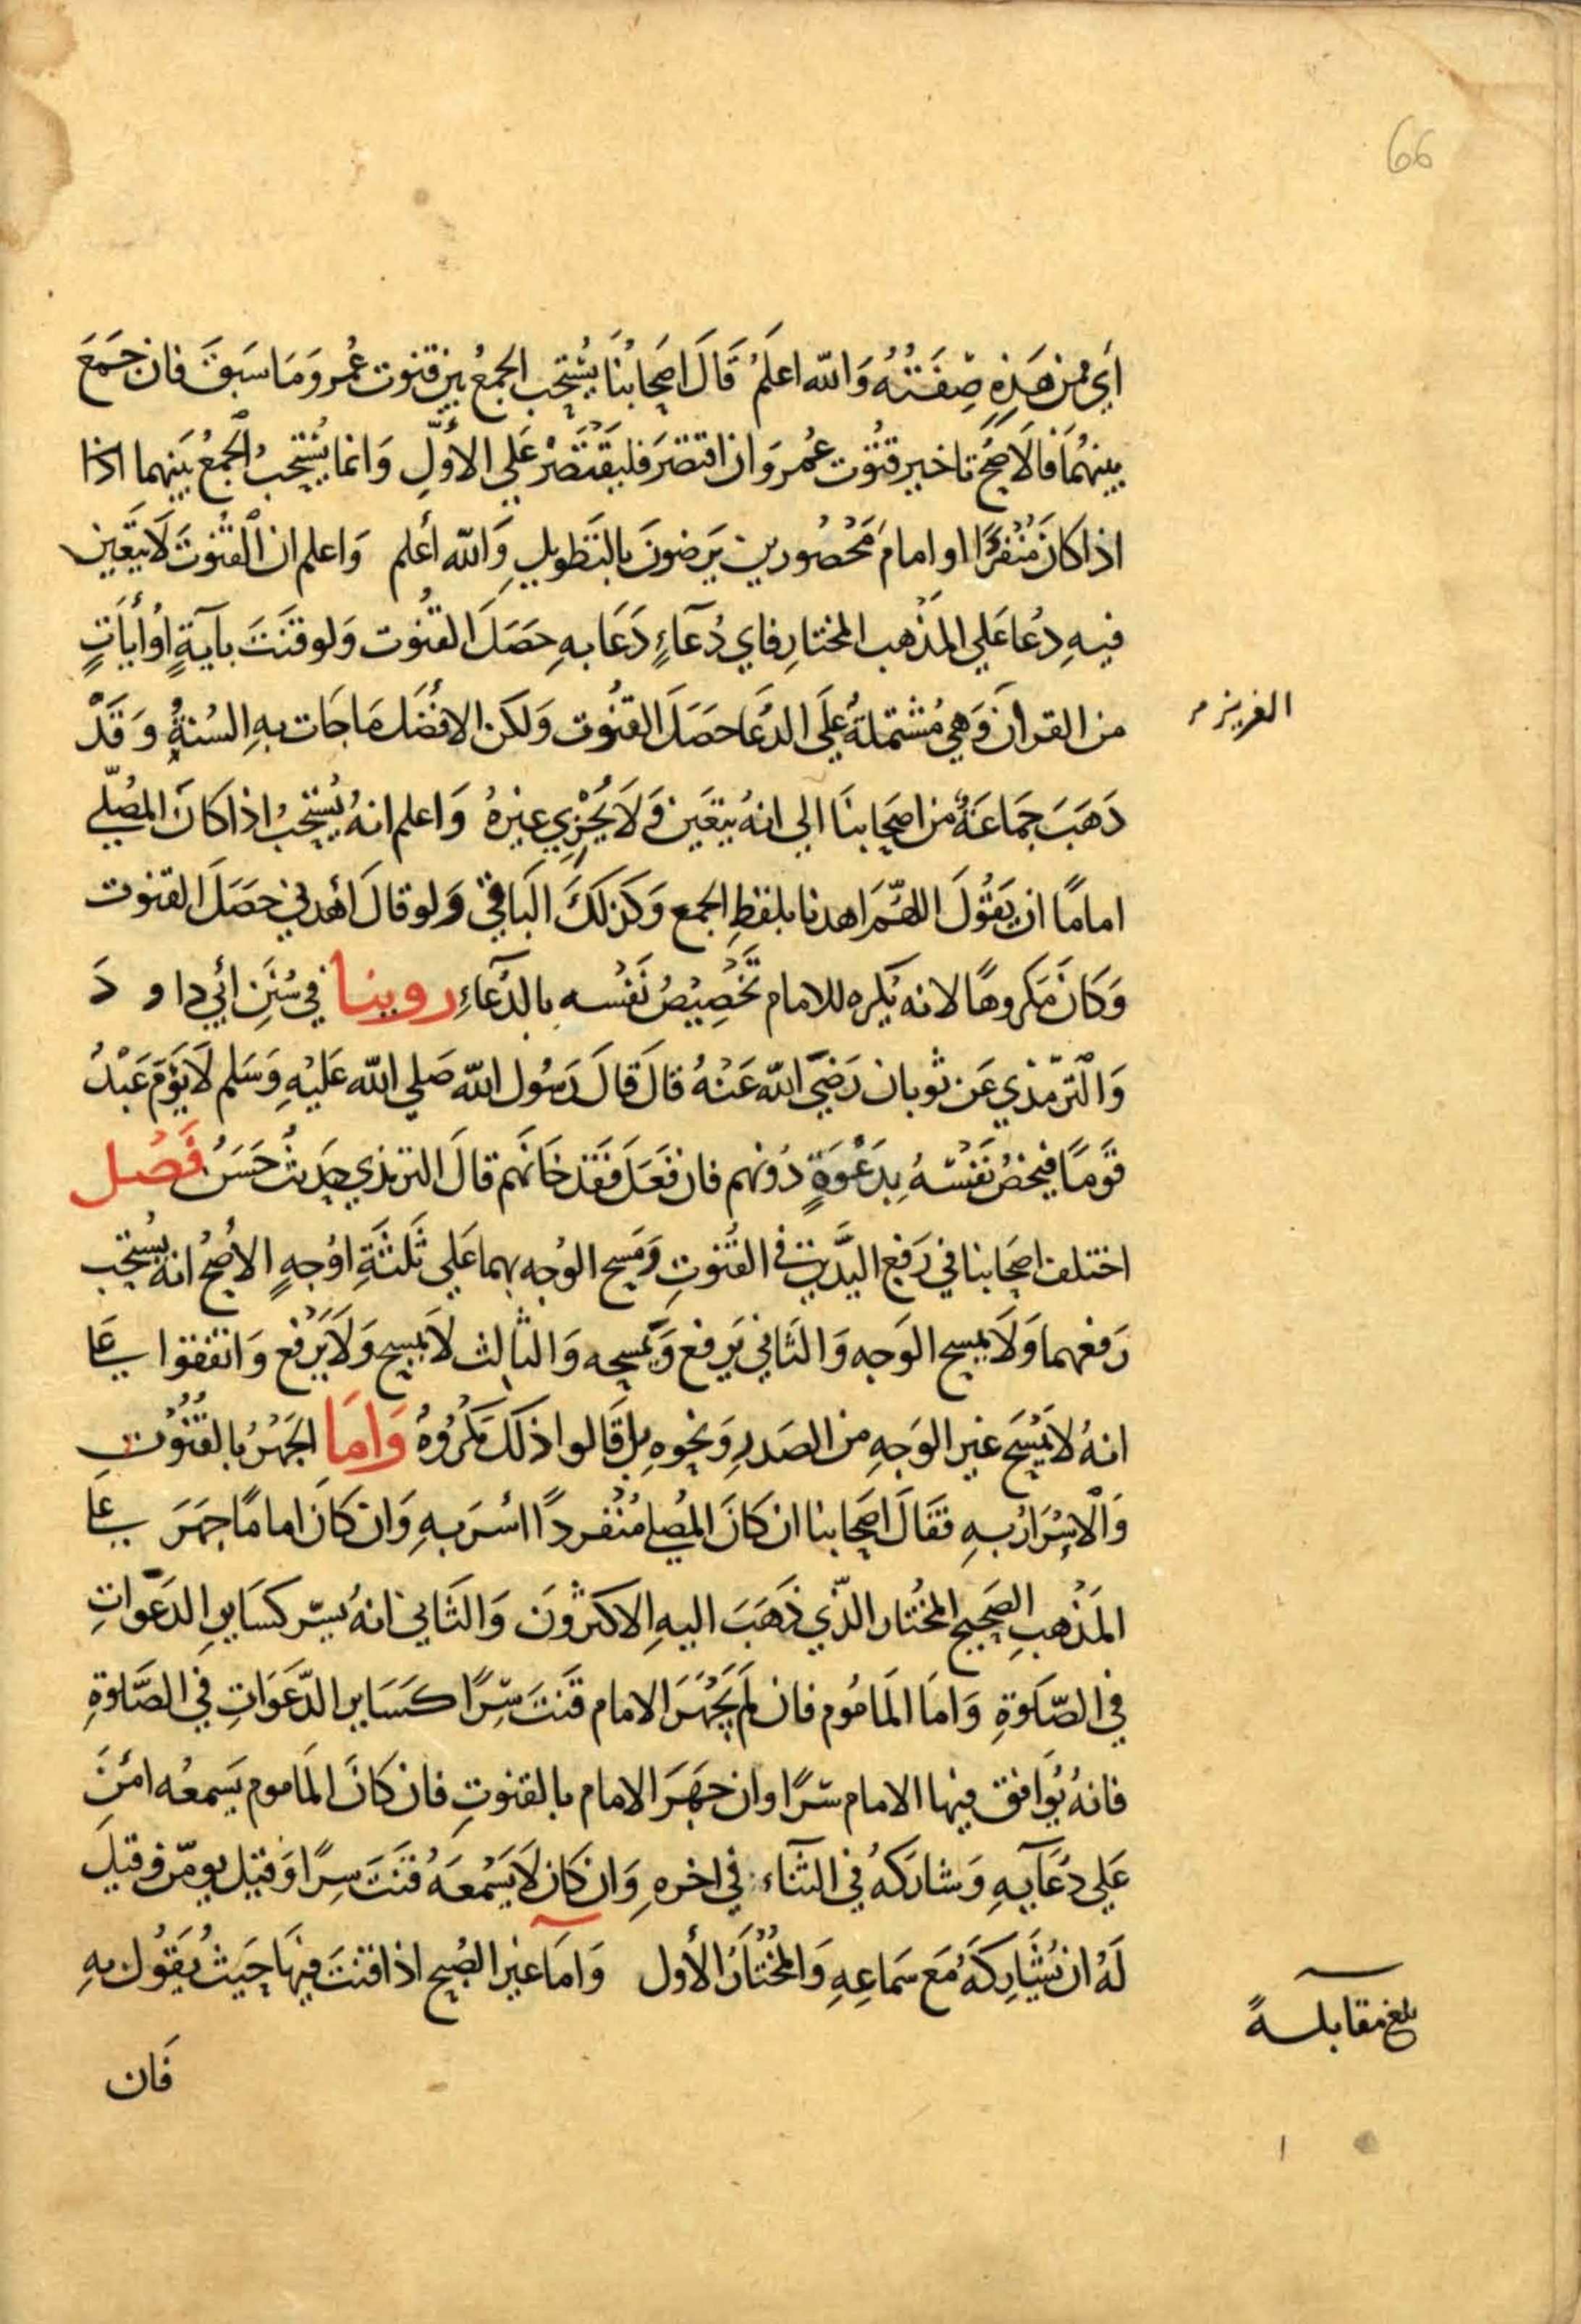 66
أي ممن هَذِهِ صِفَتُهُ وَالله اعلَمُ قَالَ اصحَابُنَا يُسْتِحب الجمعُ بين قنوت عُمر وَمَا سَبَقَ فان جَمَعَ
بينهُمَا فَالاَصَحُ تاخير قنُوت عُمرَ وَان اقتصَرَ فليَقْتَصِرْ عَلي الأوَّلِ وَانما يُسْتَحِبُ الجمعُ بَينهما اذا
اذا كَانَ مُنْفَرِدًا او امامَ مَحْصُورين يَرضونَ بالتَطويلِ وَالله أعلم وَاعلم ان القُنُوتَ لَا يَتَعَين
فيهِ دعُا عَلي المَذْهب المختارِ فاي دُعَآءٍ دَعَا بهِ حَصَلَ القنُوت وَلو قَنَتَ بآيَةٍ اوْ أيَاتٍ
من القرأن وَهيَ مُشتملةٌ علَى الدعَا حَصَلَ القنُوت وَلكن الافْضَلَ مَا جَات بهِ السُنةُ وَقَدْ
العزيز م
دَهَبَ جَمَاعَةٌ من اصحَابنَا الى انهُ يتعَين وَلَا يُجْزِي غيرهُ وَاعلم انهُ يُستحَبُ اذا كَانَ المصُلّي
امامًا ان يَقُولَ اللهُمَّ اهدنا بلفظِ الجمع وَكَذلَكَ البَاقي وَلو قالَ أهْدني حَصَلَ القنوت
وَكَانَ مَكروهًا لانه يَكره للامام تَخْصِيْصُ نَفْسه بالدعَآءِ روينا في سُنَنِ أبي داودَ
وَالترّمذي عَن ثوبان رَضيَ الله عَنْهُ قالَ قَالَ رَسُول الله صَلي الله عَليْهِ وَسَلم لَا يَؤمَ عَبْدُ
قَومًا فيخصُ نَفْسَهُ بِدَعْوَةٍ دُونهم فان فَعَلَ فَقَد خَانَهم قالَ الترمذي حَديثٌ حَسَنُ فَصُل
اختلف اصحَابنا في رَفع اليَدَين في القُنُوتِ وَمَسح الوُجه بهما عَلي ثَلثَةِ اوُجهٍ الأصحُ انهُ يُستحب
رَفعهما وَلَا يمسح الوَجه وَالثَاني يَرفع وَيَمسحه وَالثالث لَا يمسح وَلَا يَرْفع وَاتفقوا عَلي
انهُ لا يَمْسَحَ غير الوَجهِ من الصَدرِ وَنحوهِ بل قَالوا ذلكَ مَكرُوهُ وَامَا الجَهْرُ بالقُنُوتِ
وَالإسْرَارُ بهِ فقَالَ اصحَابنا ان كَانَ المصُلي مُنْفردًا اسُرَ بهِ وَان كَانَ امامًا جهَرَ عَلي
المَذْهبِ الصَحيح المُختار الّذي ذَهَبَ اليهِ الاكثرُونَ وَالثَاني انهُ يسرّ كسَايرِ الدَعَوَاتِ
في الصَّلَوةِ وَامَا المَامُوم فان لَم يَجْهَر الامام قَنتَ سِرًا كَسَاير الدّعَوَاتِ في الصَّلَوةِ
فانهُ يُوَافق فيها الامام سّرًا وان جهَرَ الامام بالقنوتِ فان كَانَ المَاموم يَسمعُه امَنَّ
عَلي دعَآيهِ وَشارَكهُ في الثنآء في اخره وَان كَان لَا يَسْمعَهُ قنَتَ سِرًا وَقيل يومّن وَقيلَ
لَهُ ان يُشَارِكَهُ مَعَ سَمَاعِهِ وَالمُختَارُ الأول وَامَا غير الصُبح اذا قنتَ فيهَا حَيثُ يَقُول بهِ
بلغ مقابلةً
فَان